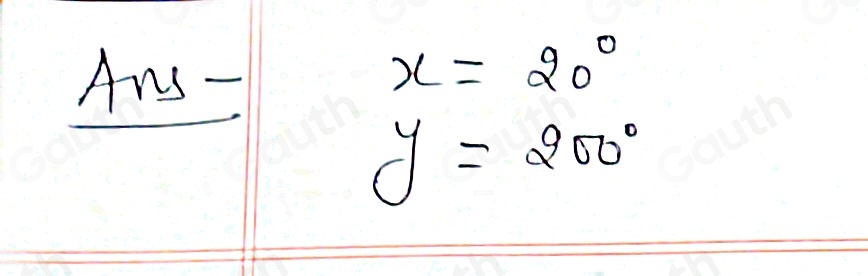 Ans - x = 20°
y = 200°
Gauth
Gauth
Gauth
Gauth